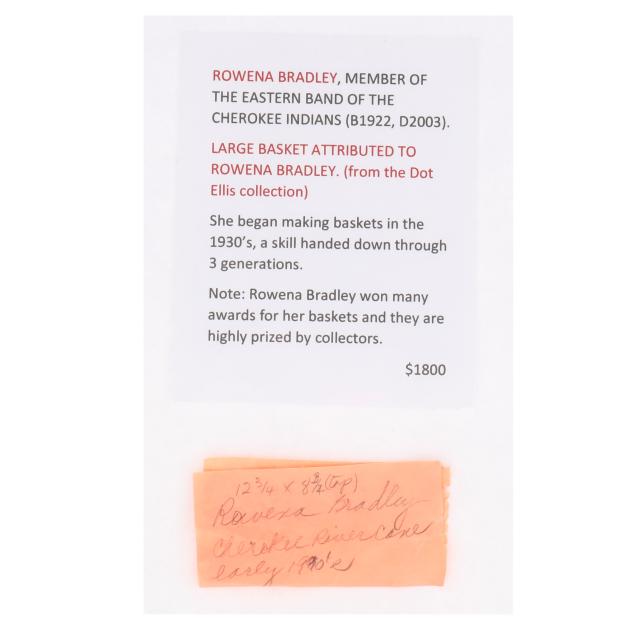 ROWENA BRADLEY, MEMBER OF
THE EASTERN BAND OF THE
CHEROKEE INDIANS (B1922, D2003).
LARGE BASKET ATTRIBUTED TO
ROWENA BRADLEY. (from the Dot
Ellis collection)
She began making baskets in the
1930's, a skill handed down through
3 generations.
Note: Rowena Bradley won many
awards for her baskets and they are
highly prized by collectors.
$1800
12 3/4 x 8 (top)
Rowena Bradley
Cherokee River Cane
early